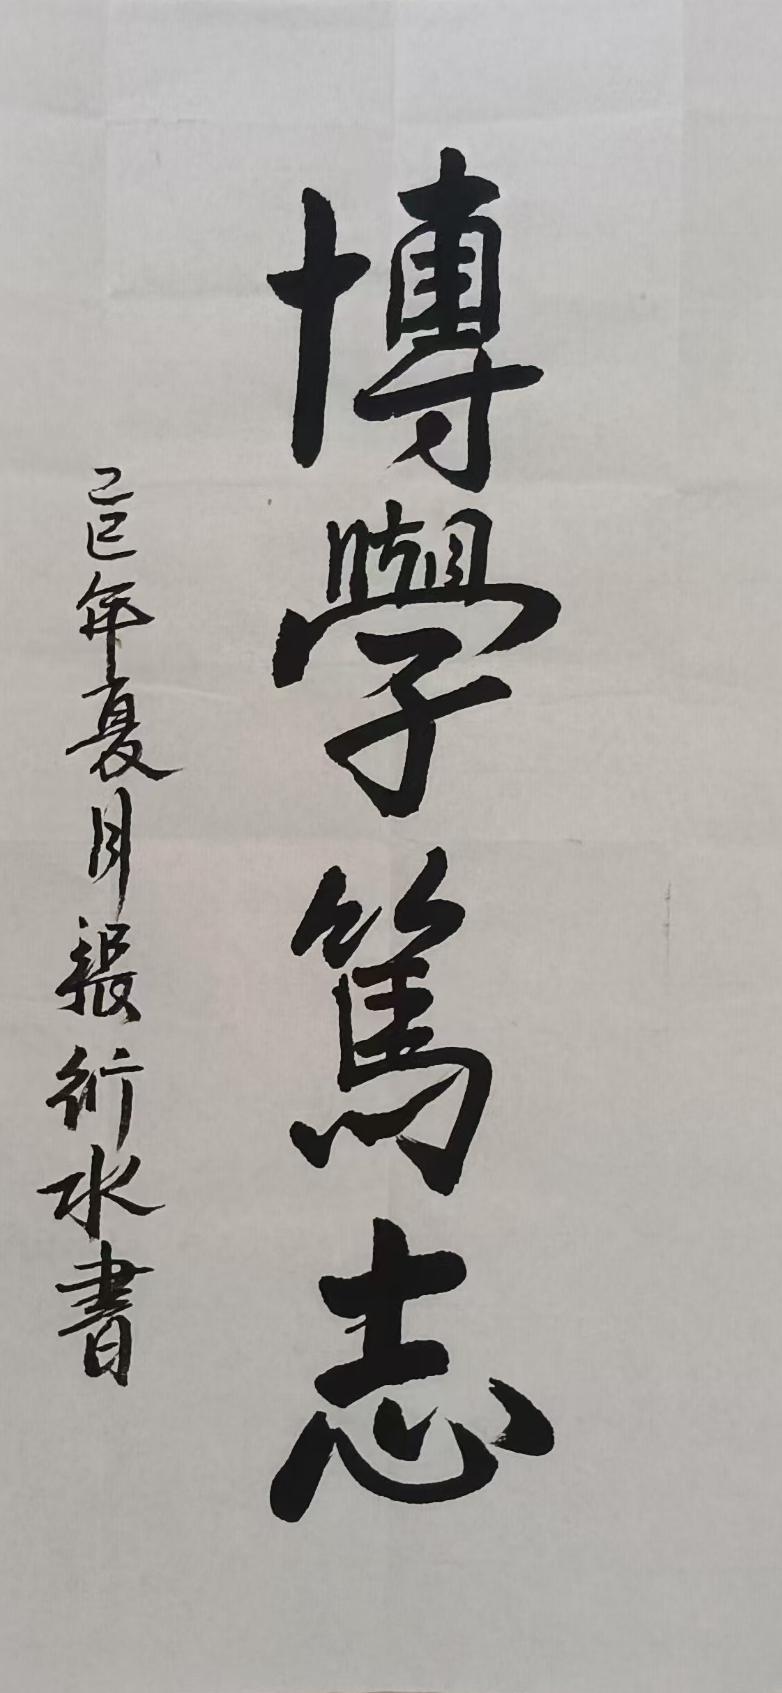 博學篤志
乙巳年夏月張衍水書